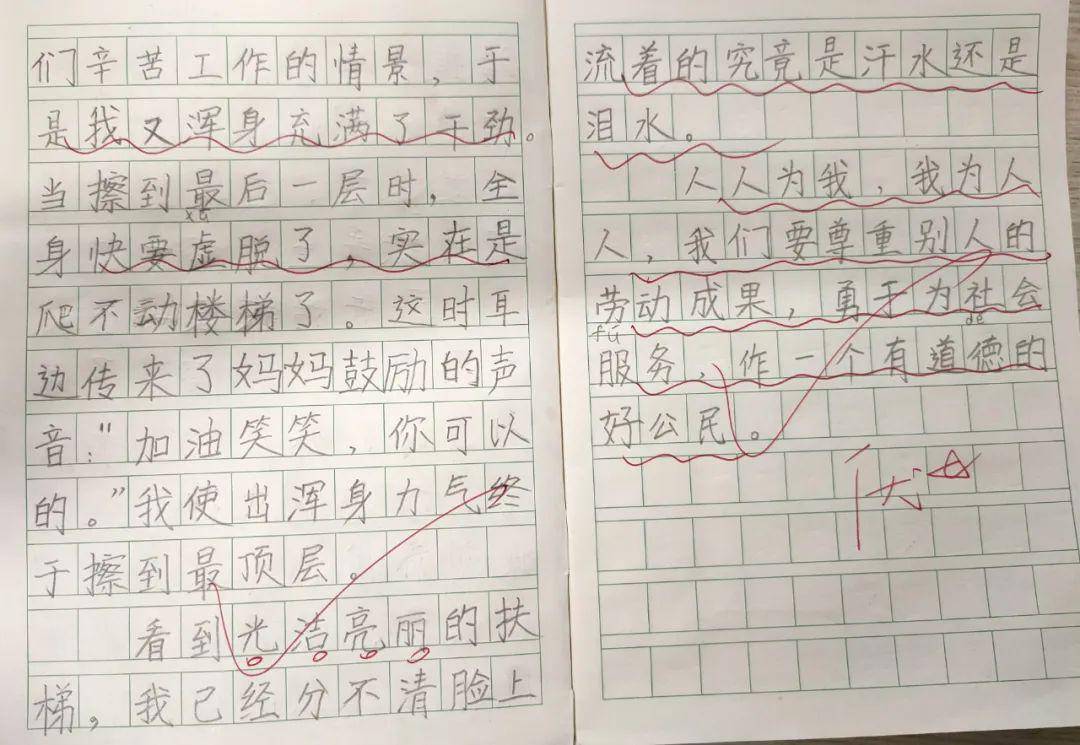 们辛苦工作的情景，于
是我又浑身充满了干劲。
当擦到最后一层时，全
xū
身快要虚脱了，实在是
爬不动楼梯了。这时耳
边传来了妈妈鼓励的声
音：“加油笑笑，你可以
的。”我使出浑身力气终
于擦到最顶层。
看到光洁亮丽的扶
梯，我已经分不清脸上
流着的究竟是汗水还是
泪水。
人人为我，我为人
人，我们要尊重别人的
劳动成果，勇于为社会
fú dé
服务，作一个有道德的
好公民。
优☆